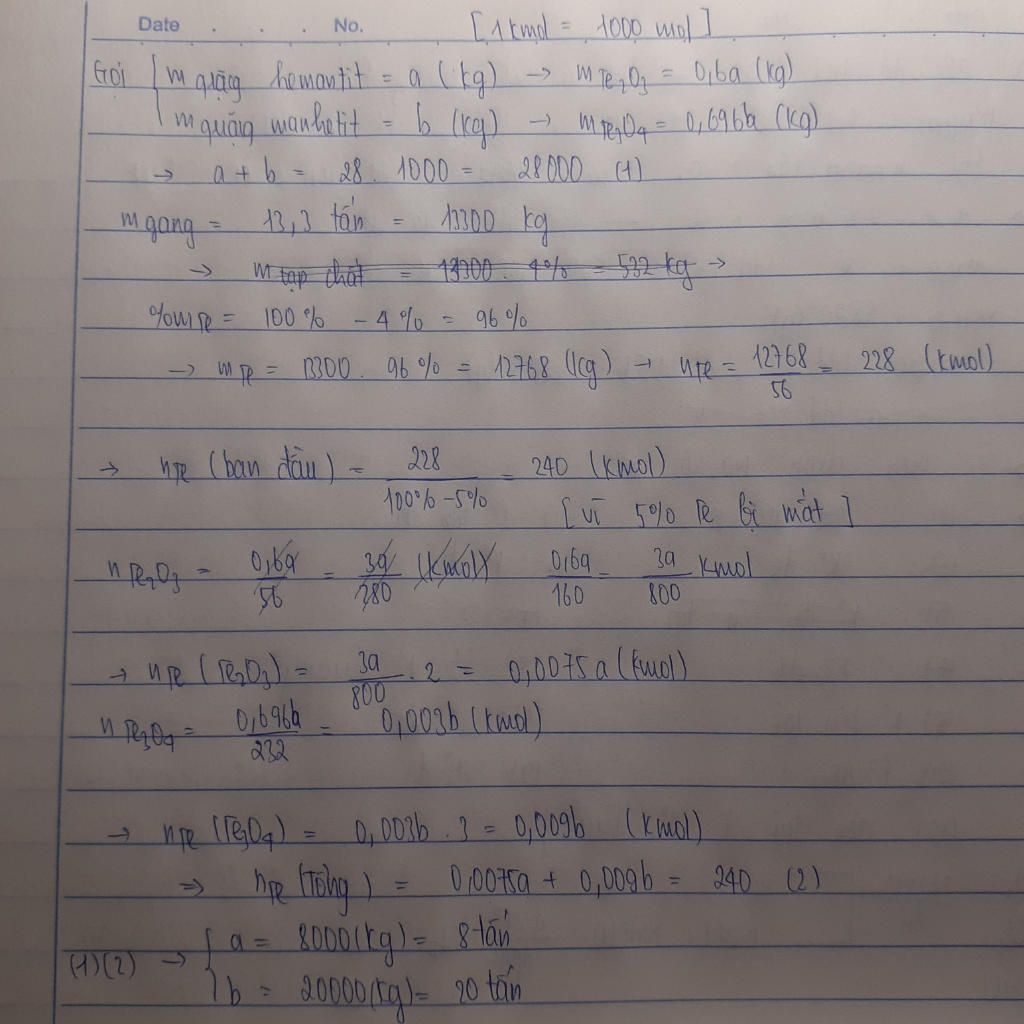 Date . . . . No. [1 kmol = 1000 mol]
Gọi { m quặng hemantit = a (kg) → mFe₂O₃ = 0,6a (kg)
m quặng manhetit = b (kg) → mFe₃O₄ = 0,696b (kg)
→ a + b = 28 . 1000 = 28000 (1)
m gang = 13,3 tấn = 13300 kg
→ m tạp chất = 13300 . 4% = 532 kg →
%mFe = 100% - 4% = 96%
→ mFe = 13300 . 96% = 12768 (kg) → nFe = 12768/56 = 228 (kmol)
→ nFe (ban đầu) = 228/(100% - 5%) = 240 (kmol)
[vì 5% Fe bị mất]
nFe₂O₃ = 0,6a/56 = 3a/280 (kmol) 0,6a/160 = 3a/800 kmol
→ nFe (Fe₂O₃) = 3a/800 . 2 = 0,0075a (kmol)
nFe₃O₄ = 0,696b/232 = 0,003b (kmol)
→ nFe (Fe₃O₄) = 0,003b . 3 = 0,009b (kmol)
⇒ nFe (Tổng) = 0,0075a + 0,009b = 240 (2)
(1)(2) → { a = 8000 (kg) = 8 tấn
b = 20000 (kg) = 20 tấn